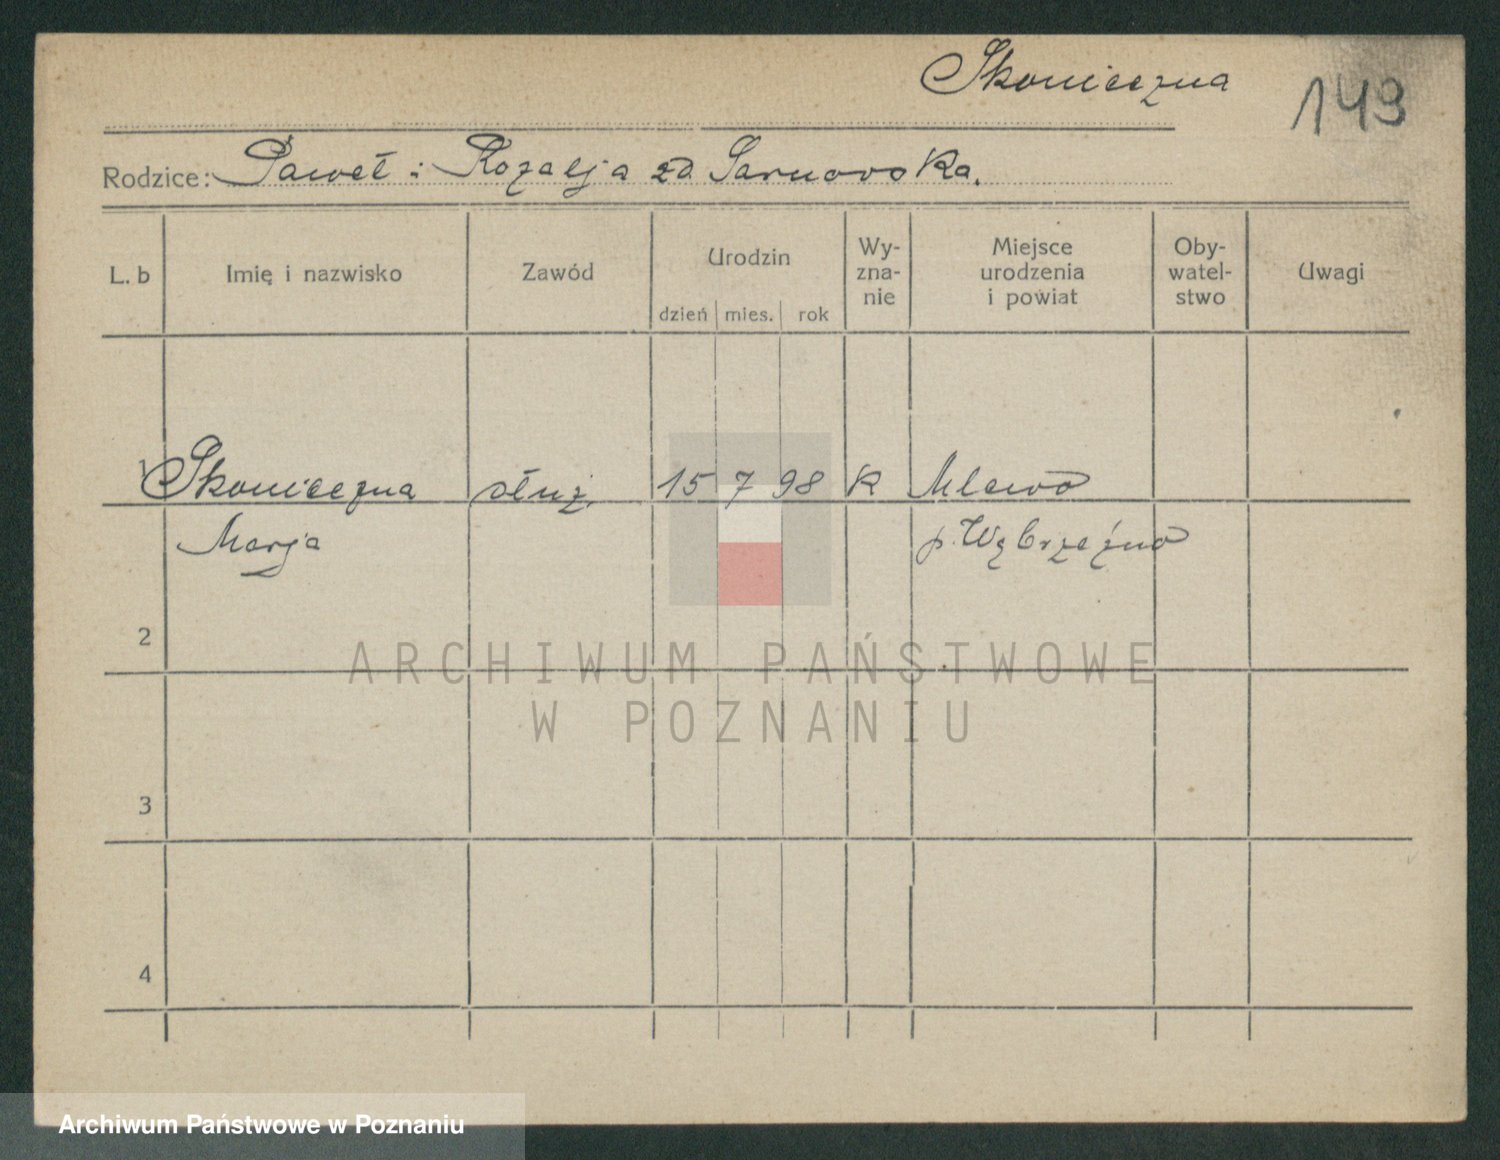 Skonieczna
149
Rodzice: Paweł i Rozalja zd. Sarnowska.
L. b
Imię i nazwisko
Zawód
Urodzin
dzień mies. rok
Wy-
zna-
nie
Miejsce
urodzenia
i powiat
Oby-
watel-
stwo
Uwagi
1 Skonieczna służ. 15 7 98 K Mlewo
Marja p. Wąbrzeźno
2
ARCHIWUM PAŃSTWOWE
W POZNANIU
3
4
Archiwum Państwowe w Poznaniu